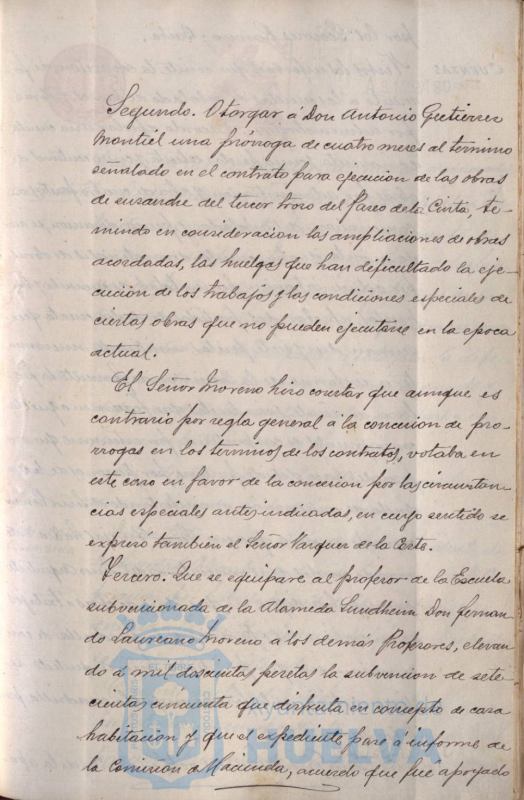 Segundo. Otorgar á Don Antonio Gutierrez
Montiel una prórroga de cuatro meses al termino
señalado en el contrato para ejecucion de las obras
de ensanche del tercer trozo del Paseo de la Cinta, te-
niendo en consideracion las ampliaciones de obras
acordadas, las huelgas que han dificultado la eje-
cución de los trabajos y las condiciones especiales de
ciertas obras que no pueden ejecutarse en la epoca
actual.
El Señor Moreno hizo constar que aunque es
contrario por regla general á la concesion de pro-
rrogas en los terminos de los contratos, votaba en
este caso en favor de la concesion por las circunstan-
cias especiales antes indicadas, en cuyo sentido se
expresó tambien el Señor Vazquez de la Corte.
Tercero. Que se equipare al profesor de la Escuela
subvencionada de la Alameda Sundheim Don Fernan-
do Laureano Moreno á los demás Profesores, elevan-
do á mil doscientas pesetas la subvencion de sete-
cientas cincuenta que disfruta en concepto de casa
habitacion y que el expediente pase á informe de
la Comision de Hacienda, acuerdo que fué apoyado
Ayuntamiento de
HUELVA